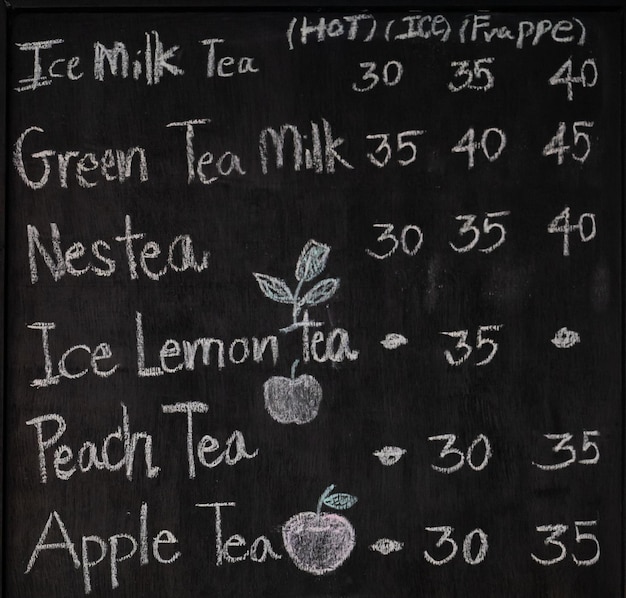 (HOT) (ICE) (Frappe)
Ice Milk Tea 30 35 40
Green Tea Milk 35 40 45
Nestea 30 35 40
Ice Lemon Tea - 35 -
Peach Tea - 30 35
Apple Tea - 30 35